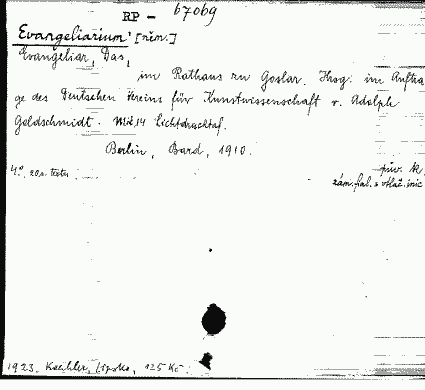 RP - 67069
Evangeliarium [něm.]
Evangeliar, Das,
im Rathaus zu Goslar. Hrsg. im Auftra
ge des Deutschen Vereins für Kunstwissenschaft v. Adolph
Goldschmidt. Mit 14 Lichtdrucktaf.
Berlin, Bard, 1910.
4° 20 s. textu
pův. 
1923. Koehler, Lipsko, 125 Kč